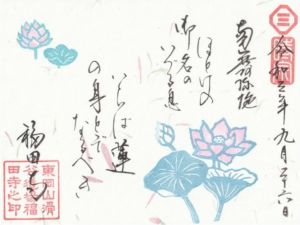 令和三年九月二十六日
南無阿弥陀
ほとけの
御名の
いづる息
いらば蓮
の身とぞ
なるべき
福田寺
東岡山滑
田寺之印